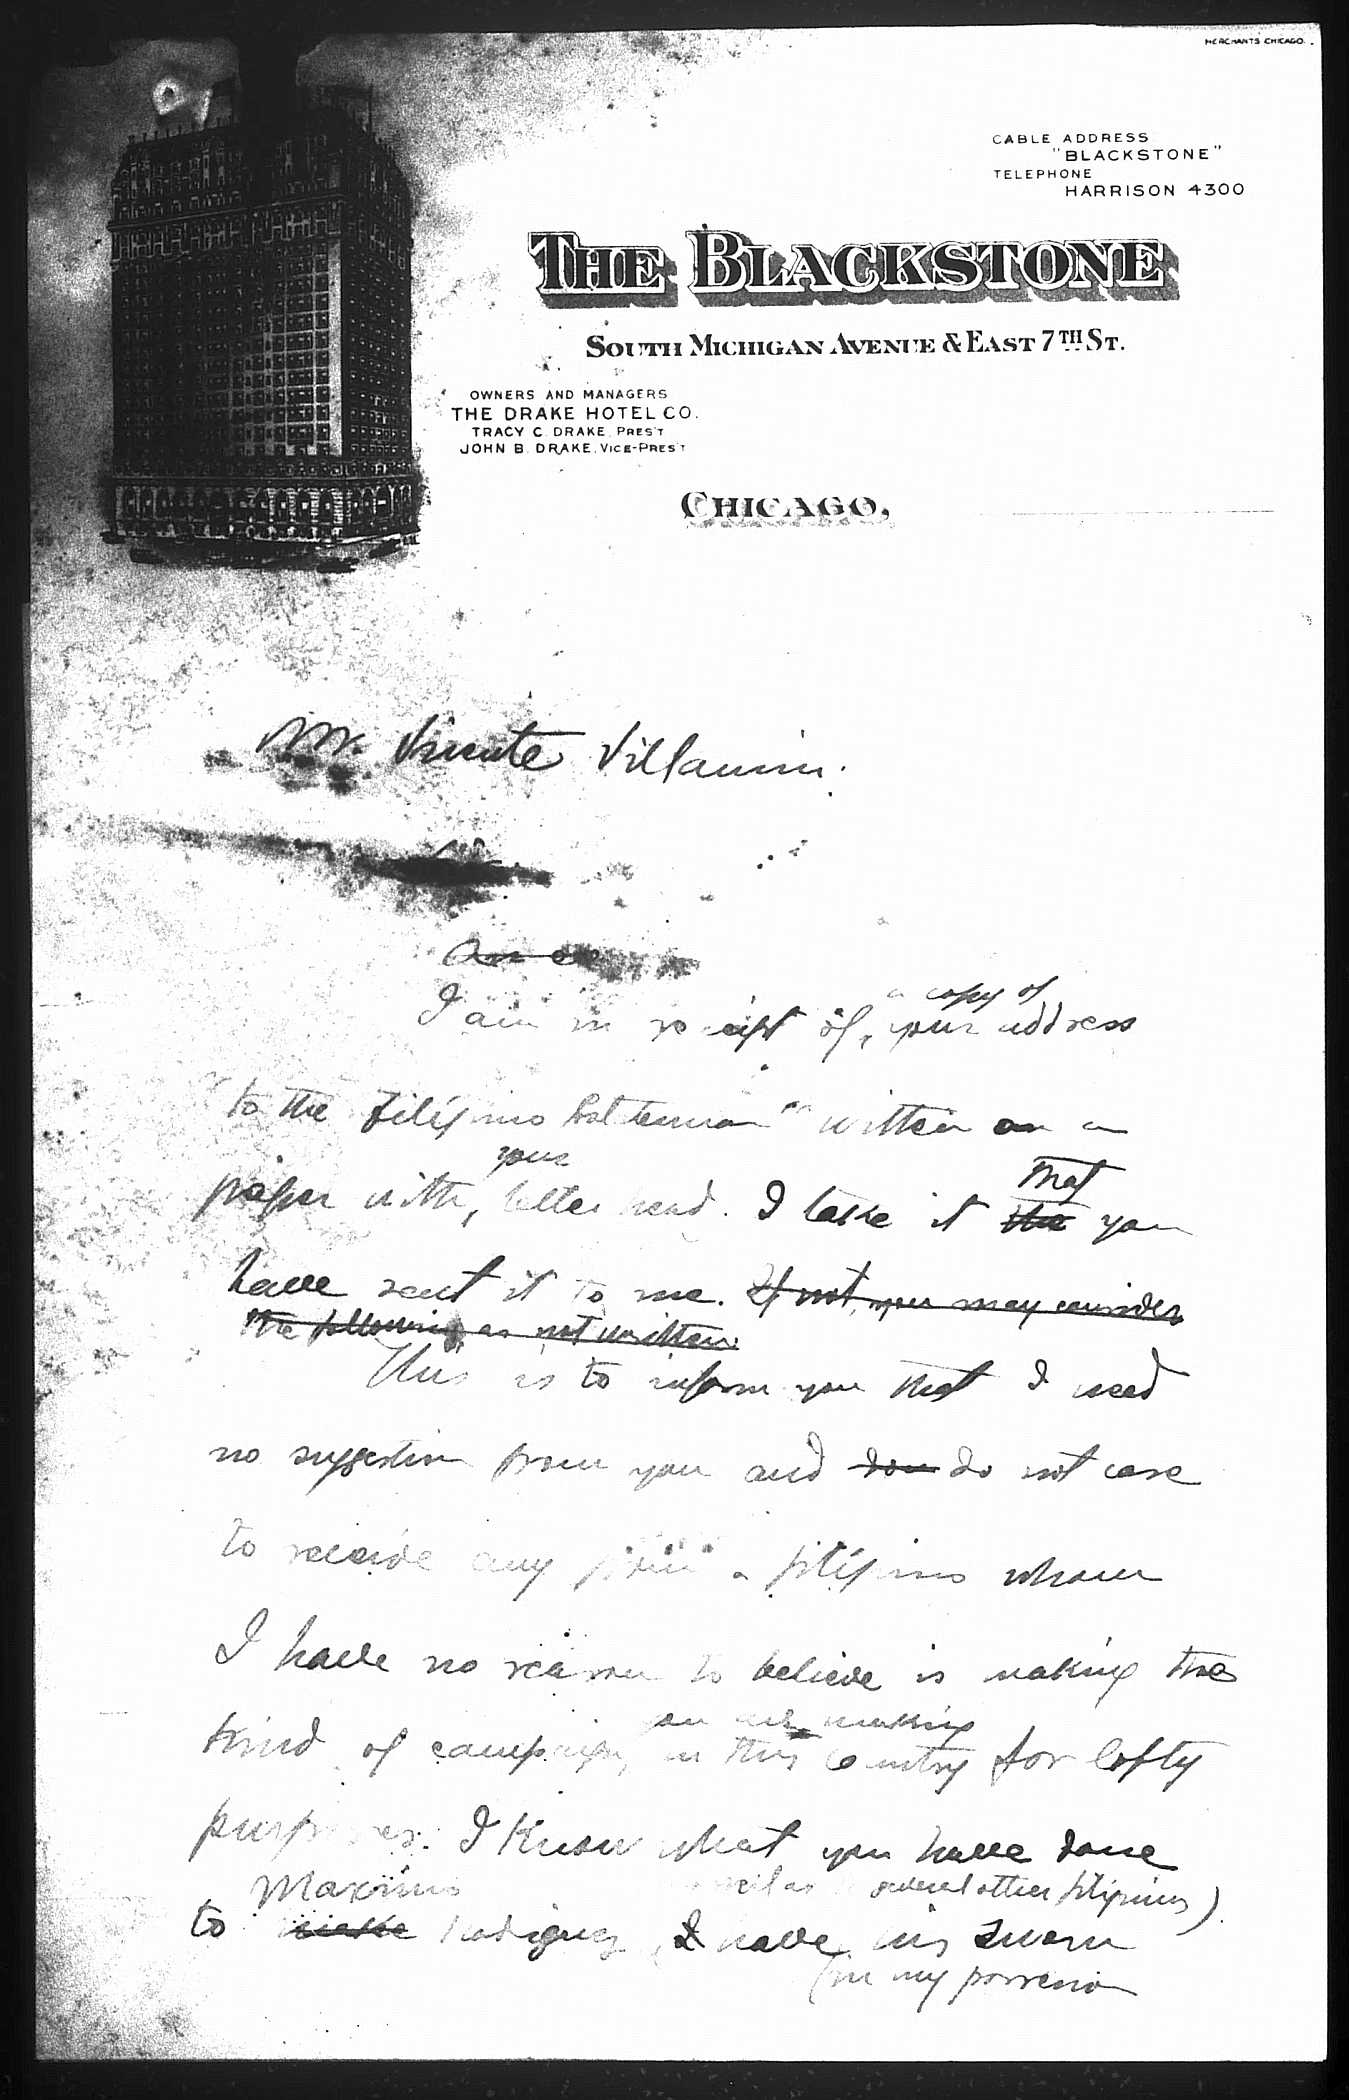 MERCHANTS CHICAGO.
CABLE ADDRESS
"BLACKSTONE"
TELEPHONE
HARRISON 4300
THE BLACKSTONE
SOUTH MICHIGAN AVENUE & EAST 7TH ST.
OWNERS AND MANAGERS
THE DRAKE HOTEL CO.
TRACY C. DRAKE, PRES'T
JOHN B. DRAKE, VICE-PRES'T
CHICAGO,
Mr. Vicente Villamin.
An
a copy of
I am in receipt of, your address
"to the Filipino Salesman" written on a
your
paper with, letter head. I take it the you
that
have sent it to me. If not, you may consider
the following as not written.
This is to inform you that I need
no suggestion from you and don do not care
to receive any from a filipino whom
I have no reason to believe is making the
kind of campaign, in this country for lofty
you are making
purposes. I know what you have done
Maximo as well as to several other filipinos)
to Rodiguez, I have his sworn
(in my possession